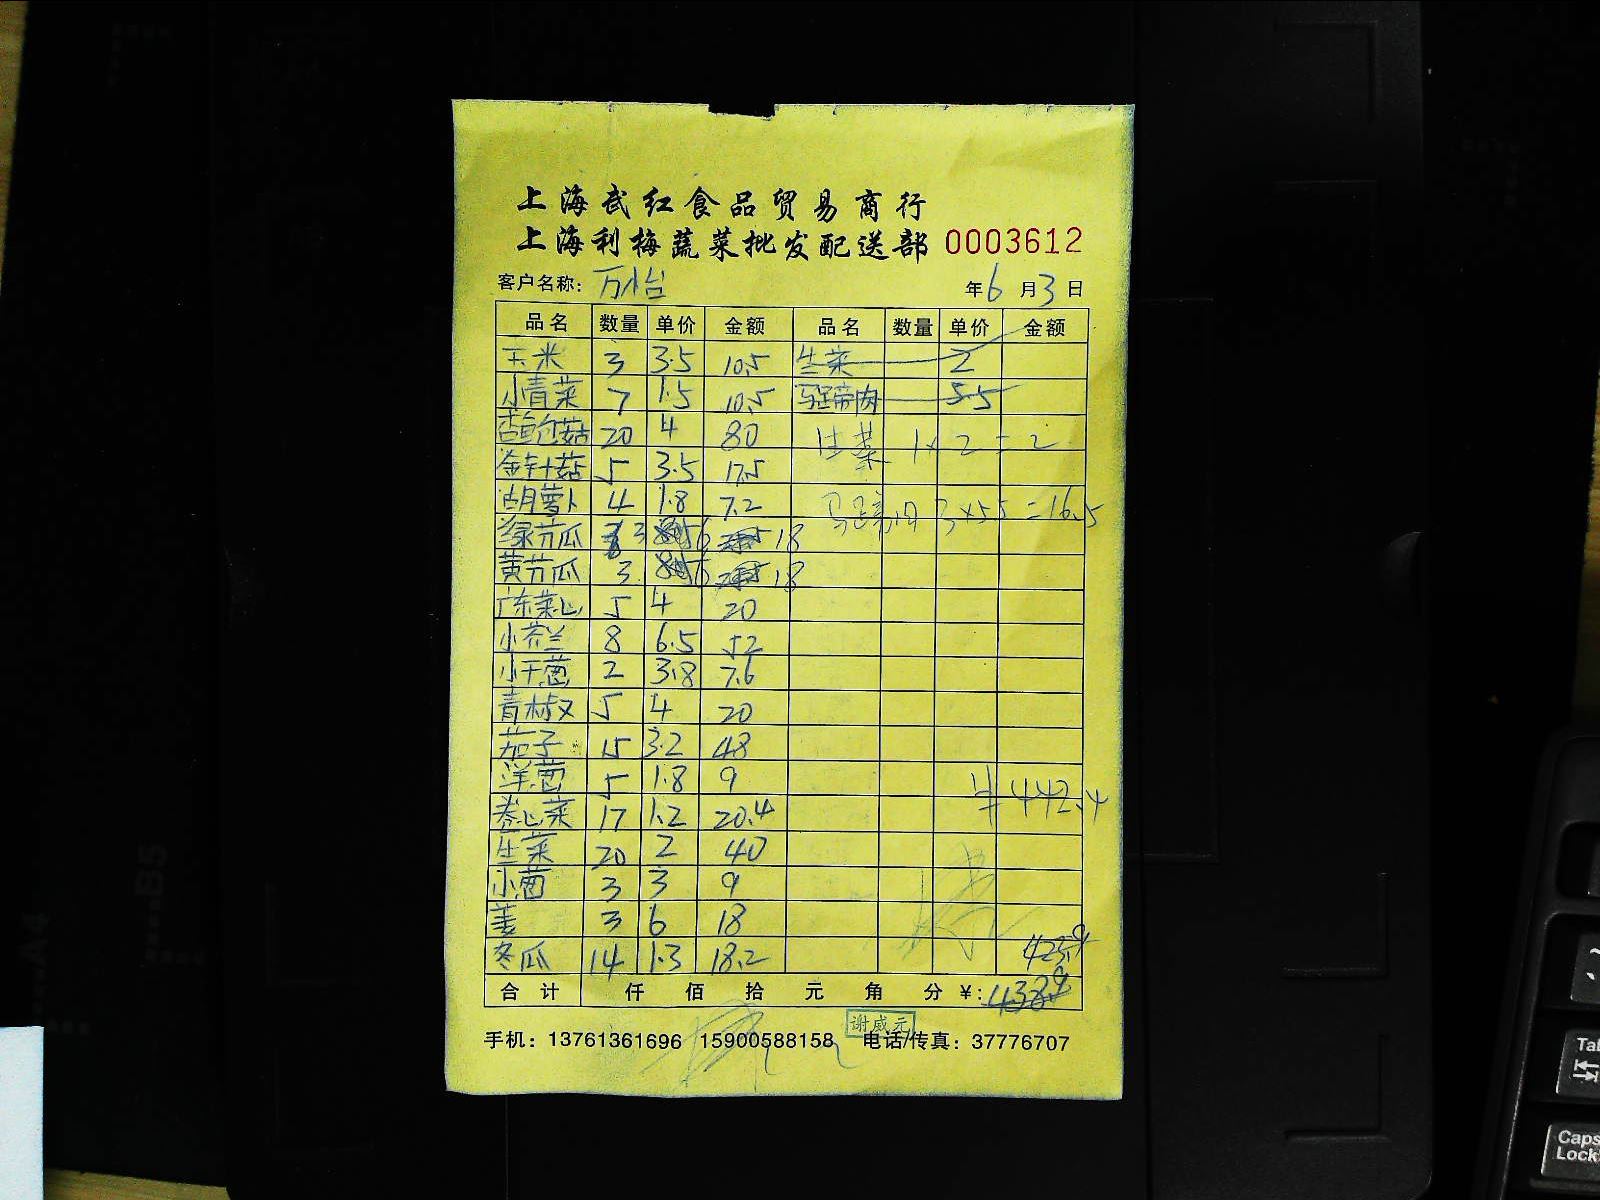 上海武红食品贸易商行
上海利梅蔬菜批发配送部 0003612
客户名称: 万怡 年6月3日
品名 数量 单价 金额 品名 数量 单价 金额
玉米 3 3.5 10.5 生菜 2
小青菜 7 1.5 10.5 马蹄肉 5.5
杏鲍菇 20 4 80 生菜 1×2=2
金针菇 5 3.5 17.5
胡萝卜 4 1.8 7.2 马蹄肉 3×5.5=16.5
绿节瓜 3 6 18
黄节瓜 3 6 18
广东菜心 5 4 20
小芥兰 8 6.5 52
小干葱 2 3.8 7.6
青椒 5 4 20
茄子 15 3.2 48
洋葱 5 1.8 9 442.4
卷心菜 17 1.2 20.4
生菜 20 2 40
小葱 3 3 9
姜 3 6 18
冬瓜 14 1.3 18.2 425.9
合计 仟 佰 拾 元 角 分 ¥: 438.9
谢威元
手机: 13761361696 15900588158 电话/传真: 37776707
A4
B5
Tab
Caps Lock